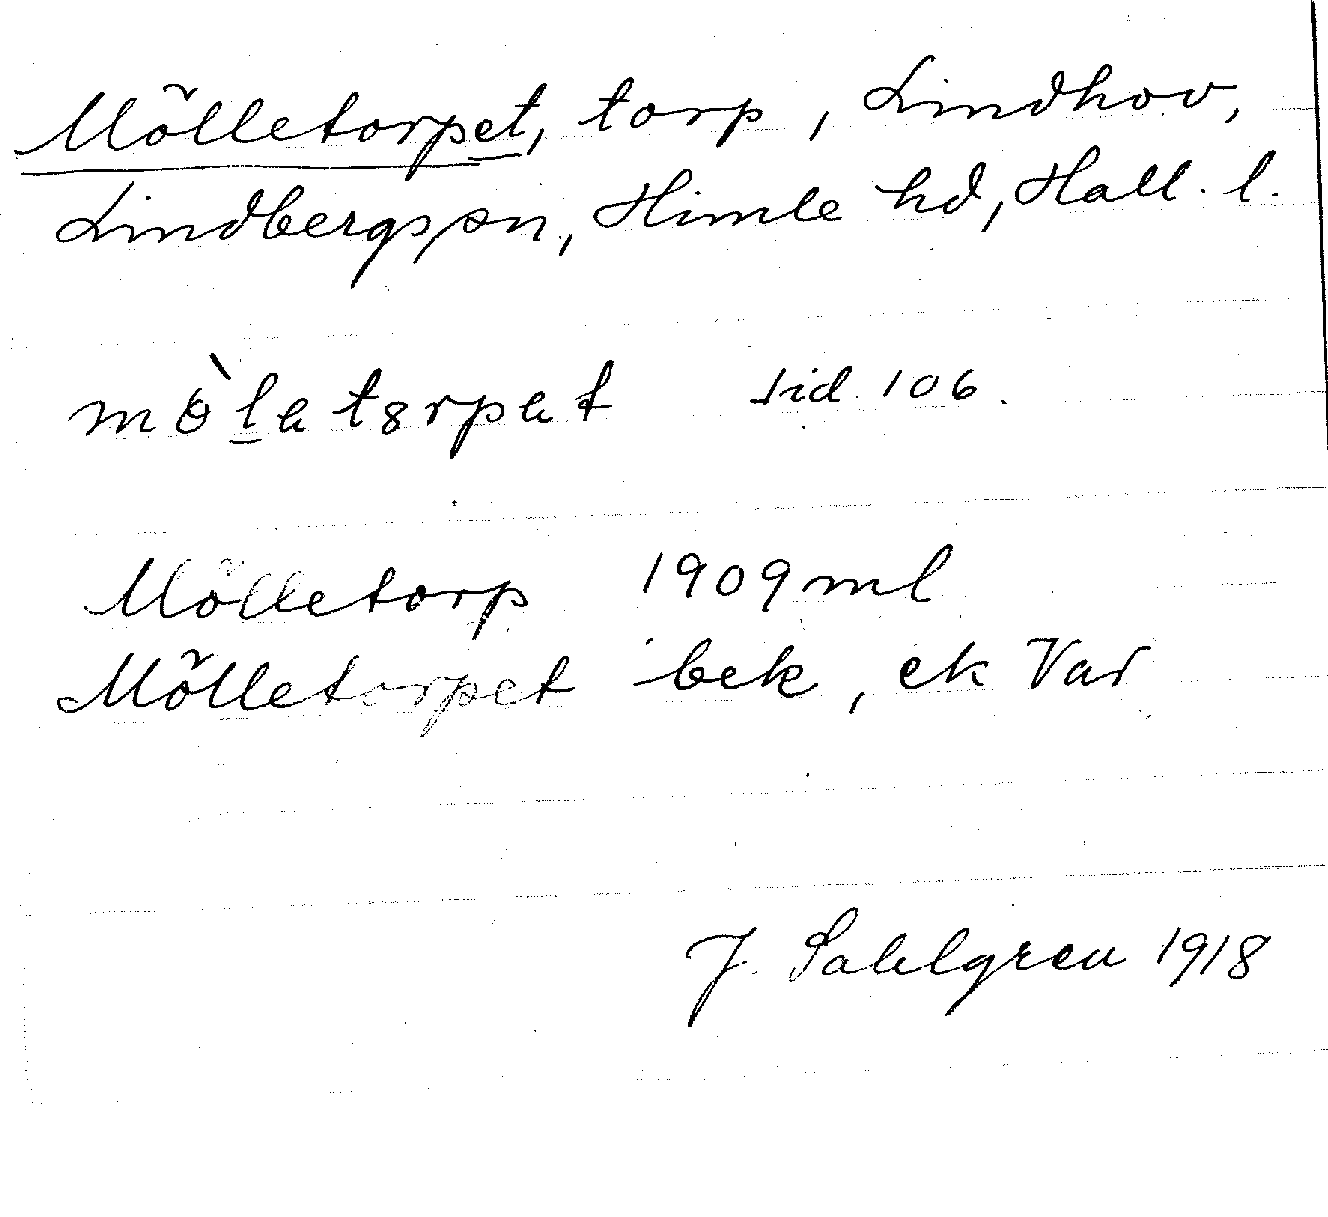 Mölletorpet, torp, Lindhov,
Lindbergs sn, Himle hd, Hall. l.
mö̀l̲atɞrpat sid. 106.
Mölletorp 1909 ml
Mölletorpet bek, ek Var
J. Sahlgren 1918